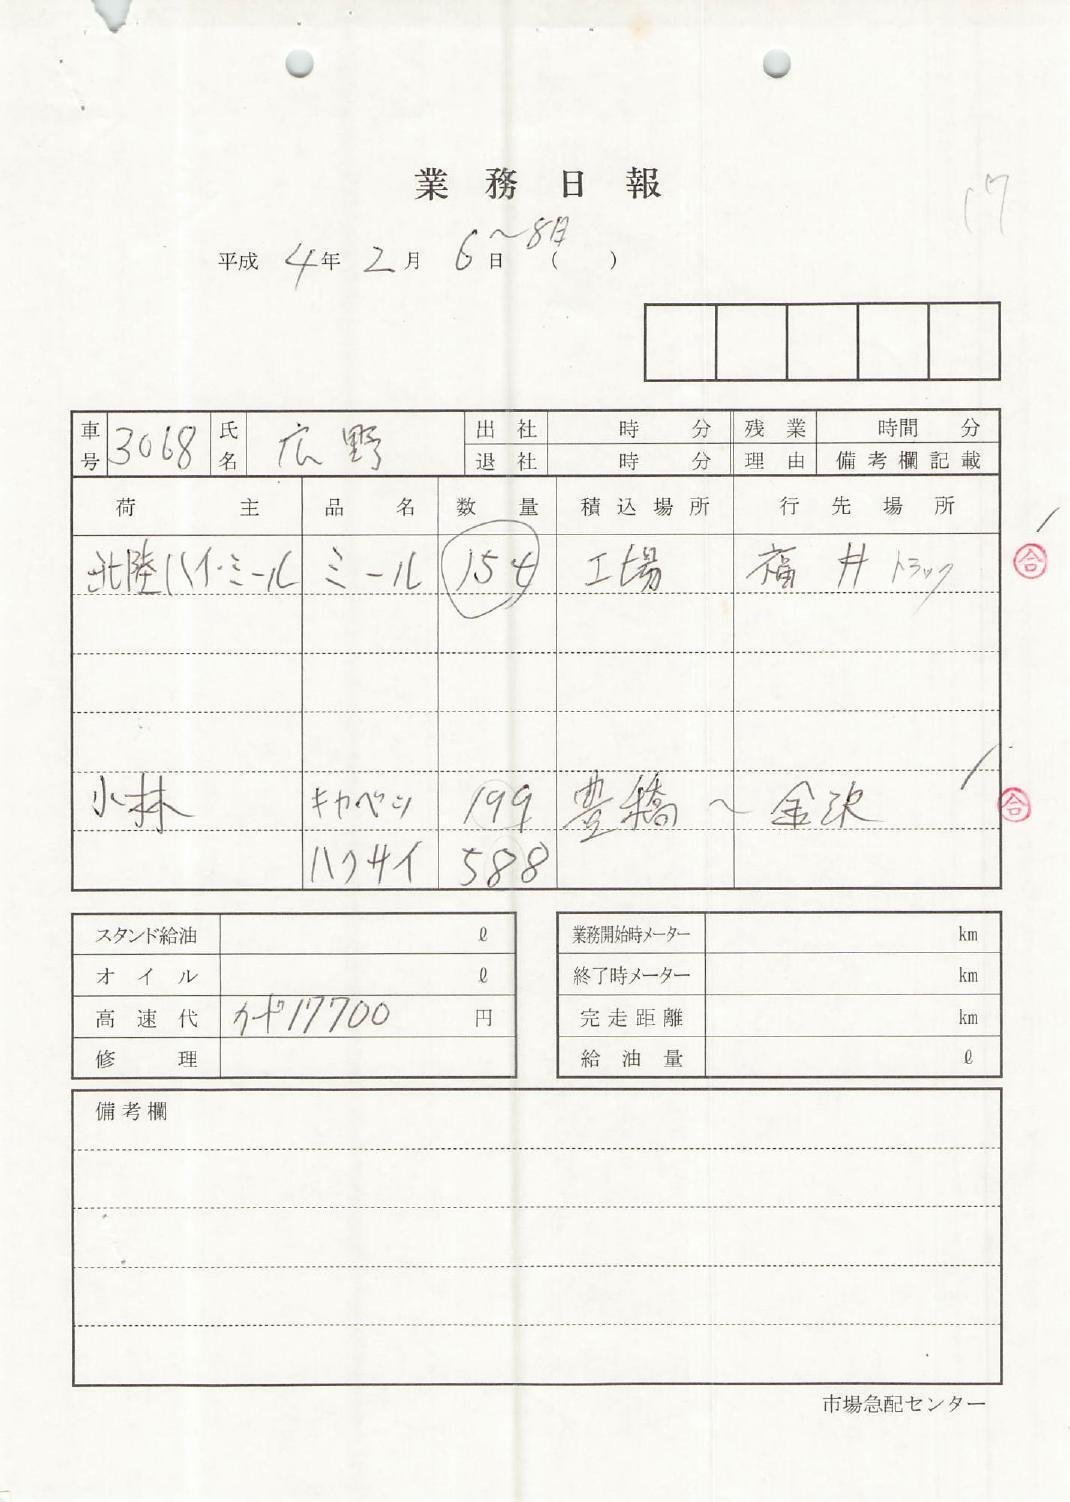 17
業務日報
平成 4年 2月 6日 ～8日 ( )
車号 3068 氏名 広野 出社 時 分 残業 時間 分
退社 時 分 理由 備考欄記載
荷主 品名 数量 積込場所 行先場所
北陸ハイ・ミール ミール 154 工場 福井トラック 合
小林 キャベツ 199 豊橋 ～ 金沢 合
ハクサイ 588
スタンド給油 ℓ 業務開始時メーター km
オイル ℓ 終了時メーター km
高速代 カード17700 円 完走距離 km
修理 給油量 ℓ
備考欄
市場急配センター